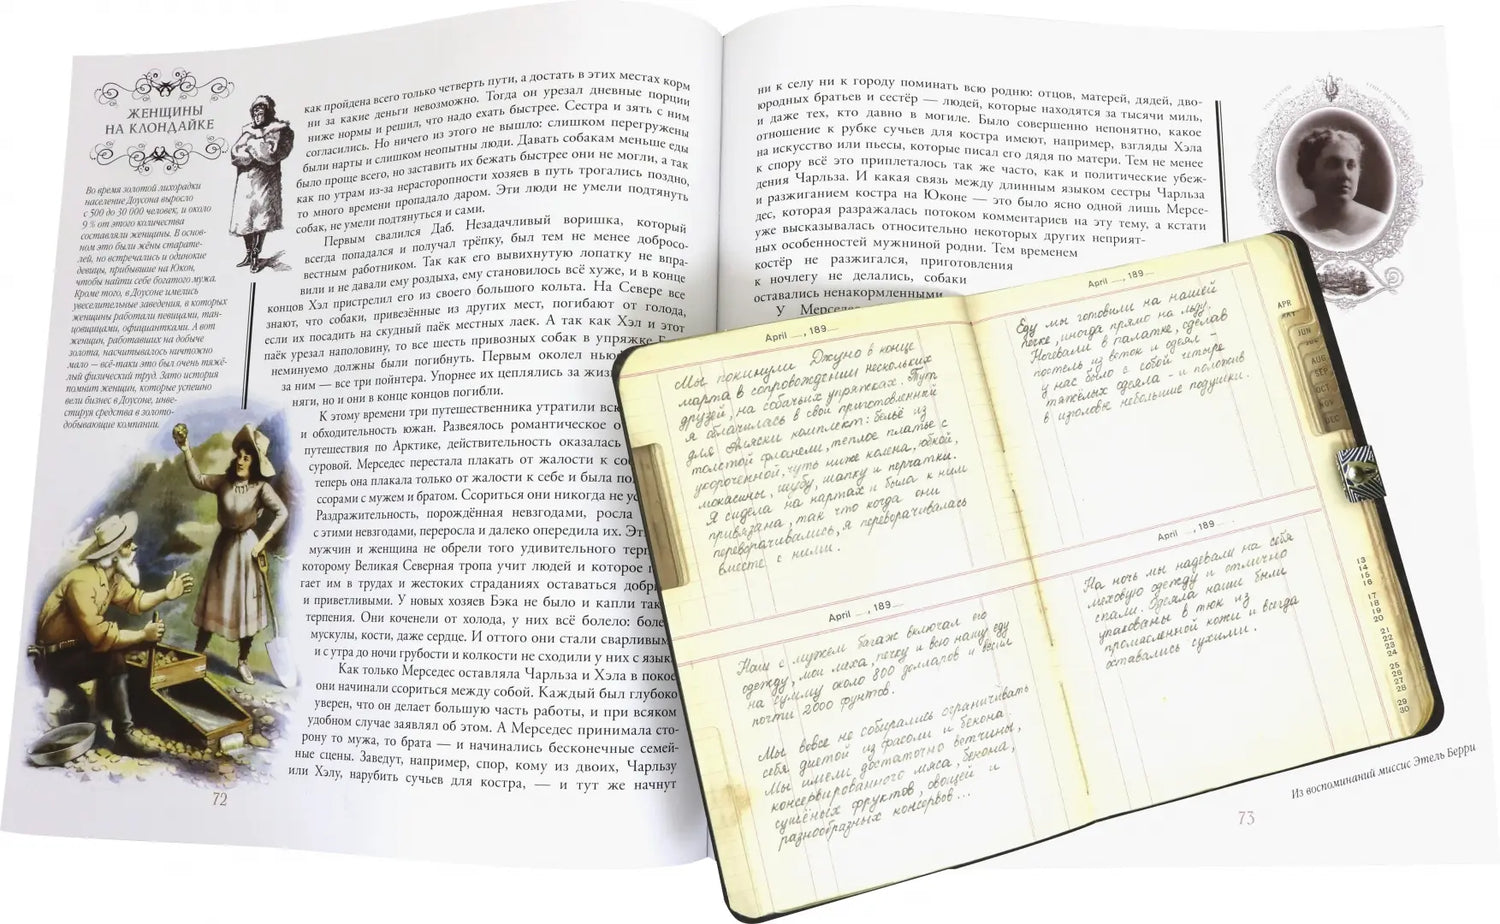 ЖЕНЩИНЫ
НА КЛОНДАЙКЕ
Во время золотой лихорадки
население Доусона выросло
с 500 до 30 000 человек, и около
9 % от этого количества
составляли женщины. В основ-
ном это были жёны старате-
лей, но встречались и одинокие
девицы, прибывшие на Юкон,
чтобы найти себе богатого мужа.
Кроме того, в Доусоне имелись
увеселительные заведения, в которых
женщины работали певицами, тан-
цовщицами, официантками. А вот
женщин, работавших на добыче
золота, насчитывалось ничтожно
мало — всё-таки это был очень тяжё-
лый физический труд. Зато история
помнит женщин, которые успешно
вели бизнес в Доусоне, инве-
стируя средства в золото-
добывающие компании.
как пройдена всего только четверть пути, а достать в этих местах корм
ни за какие деньги невозможно. Тогда он урезал дневные порции
ниже нормы и решил, что надо ехать быстрее. Сестра и зять, с ним
согласились. Но ничего из этого не вышло: слишком перегружены
были нарты и слишком неопытны люди. Давать собакам меньше еды
было проще всего, но заставить их бежать быстрее они не могли, а так
как по утрам из-за нерасторопности хозяев в путь трогались поздно,
то много времени пропадало даром. Эти люди не умели подтянуть
собак, не умели подтянуться и сами.
Первым свалился Даб. Незадачливый воришка, который
всегда попадался и получал трёпку, был тем не менее добросо-
вестным работником. Так как его вывихнутую лопатку не впра-
вили и не давали ему роздыха, ему становилось всё хуже, и в конце
концов Хэл пристрелил его из своего большого кольта. На Севере все
знают, что собаки, привезённые из других мест, погибают от голода,
если их посадить на скудный паёк местных лаек. А так как Хэл и этот
паёк урезал наполовину, то все шесть привозных собак в упряжке
неминуемо должны были погибнуть. Первым околел
за ним — все три пойнтера. Упорнее их цеплялись за
няги, но и они в конце концов погибли.
К этому времени три путешественника утратили
и обходительность южан. Развеялось романтическое
путешествия по Арктике, действительность оказалась
суровой. Мерседес перестала плакать от жалости к
теперь она плакала только от жалости к себе и была
ссорами с мужем и братом. Ссориться они никогда не
Раздражительность, порождённая невзгодами, росла
с этими невзгодами, переросла и далеко опередила их.
мужчин и женщина не обрели того удивительного
которому Великая Северная тропа учит людей и которое
гает им в трудах и жестоких страданиях оставаться
и приветливыми. У новых хозяев Бэка не было и капли
терпения. Они коченели от холода, у них всё болело:
мускулы, кости, даже сердце. И оттого они стали сварливы
и с утра до ночи грубости и колкости не сходили у них с
Как только Мерседес оставляла Чарльза и Хэла в покое
они начинали ссориться между собой. Каждый был глубоко
уверен, что он делает большую часть работы, и при всяком
удобном случае заявлял об этом. А Мерседес принимала сто-
рону то мужа, то брата — и начинались бесконечные семей-
ные сцены. Заведут, например, спор, кому из двоих, Чарльзу
или Хэлу, нарубить сучьев для костра, — и тут же начнут
72
ни к селу ни к городу поминать всю родню: отцов, матерей, дядей, дво-
юродных братьев и сестёр — людей, которые находятся за тысячи миль,
и даже тех, кто давно в могиле. Было совершенно непонятно, какое
отношение к рубке сучьев для костра имеют, например, взгляды Хэла
на искусство или пьесы, которые писал его дядя по матери. Тем не менее
к спору всё это приплеталось так же часто, как и политические убеж-
дения Чарльза. И какая связь между длинным языком сестры Чарльза
и разжиганием костра на Юконе — это было ясно одной лишь Мерсе-
дес, которая разражалась потоком комментариев на эту тему, а кстати
уже высказывалась относительно некоторых других неприят-
ных особенностей мужниной родни. Тем временем
костёр не разжигался, приготовления
к ночлегу не делались, собаки
оставались ненакормленными.
У Мерседес
April __, 189__
Мы покинули Джуно в конце
марта в сопровождении нескольких
друзей, на собачьих упряжках. Тут
я облачилась в свой приготовленный
для Аляски комплект: бельё из
толстой фланели, тёплое платье с
укороченной, чуть ниже колена, юбкой,
мокасины, шубу, шапку и перчатки.
Я сидела на нартах и была к ним
привязана, так что когда они
переворачивались, я переворачивалась
вместе с ними.
April __, 189__
Наш с мужем багаж включал его
одежду, мои меха, печку и всю нашу еду
на сумму около 800 долларов и весил
почти 2000 фунтов.
Мы вовсе не собирались ограничивать
себя диетой из фасоли и бекона.
Мы имели достаточно ветчины,
консервированного мяса, бекона,
сушёных фруктов, овощей и
разнообразных консервов...
April __, 189__
Еду мы готовили на нашей
печке, иногда прямо на льду.
Ночевали в палатке, сделав
постель из веток и одеял -
у нас было с собой четыре
тяжёлых одеяла - и положив
в изголовье небольшие подушки.
April __, 189__
На ночь мы надевали на себя
меховую одежду и отлично
спали. Одеяла наши были
упакованы в тюк из
промасленной кожи и всегда
оставались сухими.
APR
MAY
JUN
AUG
SEP
OCT
NOV
DEC
13
14
15
16
17
18
19
20
21
22
23
24
25
26
27
28
29
30
Из воспоминаний миссис Этель Берри
73